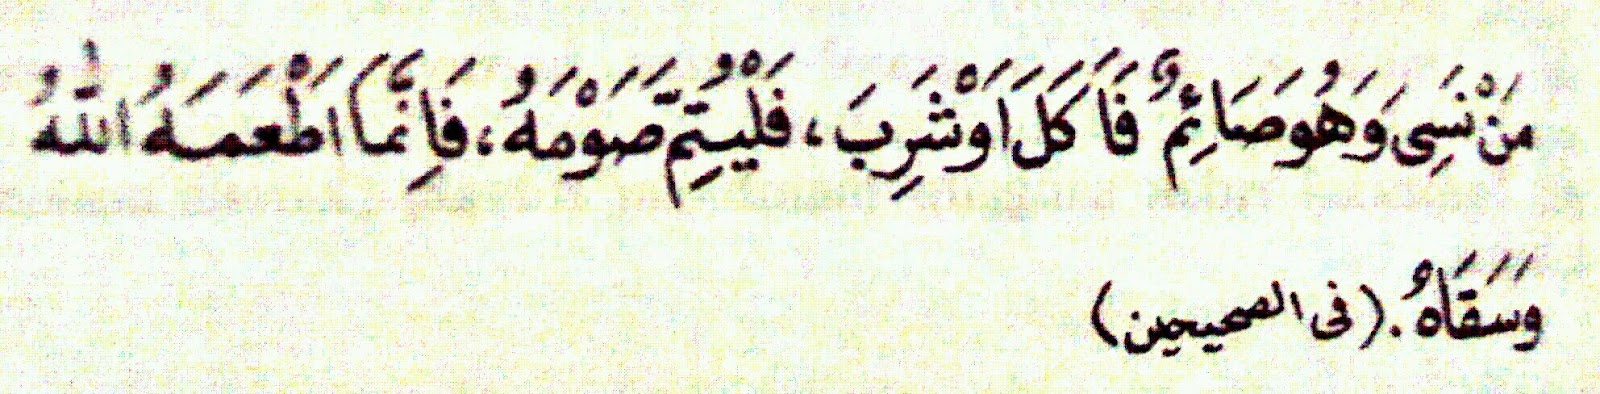 مَنْ نَسِىَ وَهُوَ صَائِمٌ فَاَ كَلَ اَوْشَرِبَ ، فَلْيُتِمَّ صَوْمَهُ ، فَاِنَّمَا اَطْعَمَهُ اللّٰهُ
وَسَقَاهُ . (فى الصحيحين)